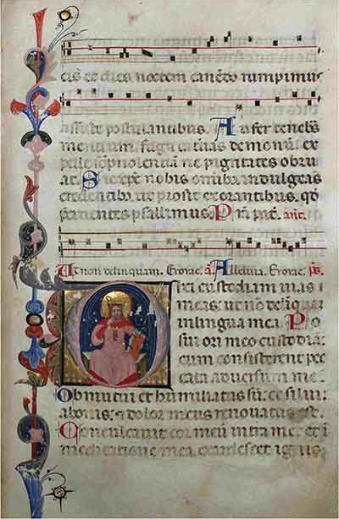 cis et dies noctem canendo rumpimus
assiste postulantibus. Aufer tenebras
mentium, fuga catervas demonum ex
pelle sompnolentiam ne pigritantes obru
at. Sic xpe nobis omnibus indulgeas
credentibus ut prosit exorantibus, qd
precinentes psallimus. P
Ut non delinquam. Evovae. Alleluia. Evovae. ps.
ixi custodiam vias
meas: ut nō delīquā
in lingua mea. Po
sui ori meo custodiā:
cum consisteret pec
cator adversum me.
Obmutui et humiliatus sū: et silui
a bonis: et dolor meus renovatus est.
Concaluit cor meū intra me: et i
meditatione mea exardescet ignis.